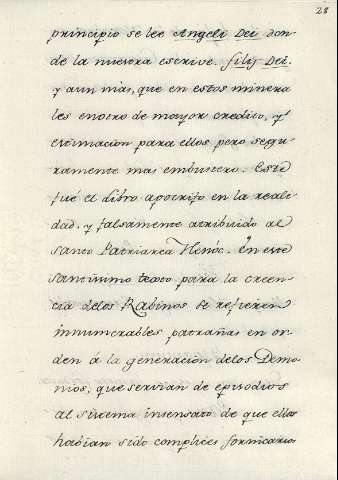 28
principio se lee Angeli Dei don-
de la nuestra escrive. filij Dei.
y aun mas, que en estos minera
les en otro de mayor credito, y
estimacion para ellos pero segu-
ramente mas embustero. Este
fué el libro apocrifo en la reali
dad, y falsamente atribuido al
santo Patriarca Henóc. En este
santissimo texto para la creen-
cia delos Rabinos se refieren
innumerables patrañas en or-
den à la generacion delos Demo-
nios, que servian de episodios
al sistema insensato de que ellos
habian sido complices fornicarios